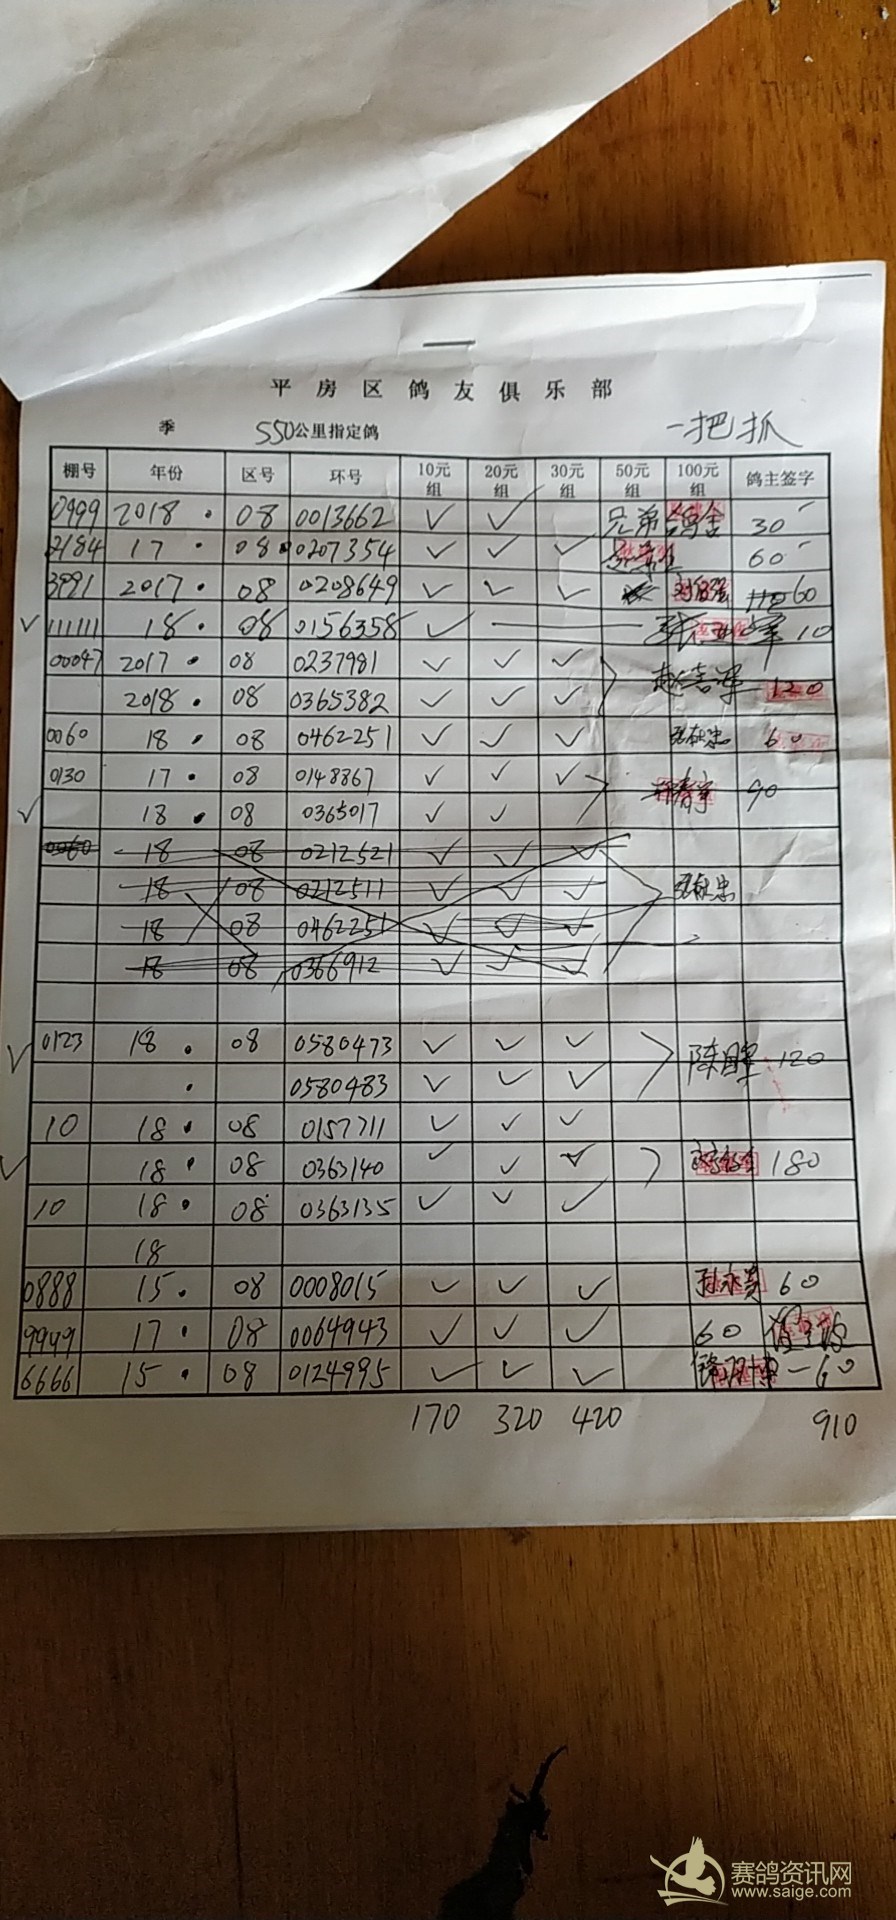 平房区鸽友俱乐部
季 550公里指定鸽 一把抓
棚号 年份 区号 环号 10元组 20元组 30元组 50元组 100元组 鸽主签字
0999 2018. 08 0013662 ✓ ✓ 兄弟鸽舍 30
2184 17. 08 0207354 ✓ ✓ ✓ 60
3991 2017. 08 0208649 ✓ ✓ ✓ 60
✓ 111111 18. 08 0156358 ✓ 10
00047 2017. 08 0237981 ✓ ✓ ✓
2018. 08 0365382 ✓ ✓ ✓ 120
0060 18. 08 0462251 ✓ ✓ ✓ 60
0130 17. 08 0148867 ✓ ✓ ✓ 90
✓ 18. 08 0365017 ✓ ✓
0060 18 08 0212521 ✓ ✓ ✓
18 08 0212511 ✓ ✓ ✓
18 08 0462251 ✓ ✓ ✓
18 08 0366912 ✓ ✓ ✓
✓ 0123 18. 08 0580473 ✓ ✓ ✓ 120
. 0580483 ✓ ✓ ✓
10 18. 08 0157711 ✓ ✓ ✓
✓ 18. 08 0363140 ✓ ✓ ✓ 180
10 18. 08 0363135 ✓ ✓ ✓
18
0888 15. 08 0008015 ✓ ✓ ✓ 60
9949 17. 08 0064943 ✓ ✓ ✓ 60
6666 15. 08 0124995 ✓ ✓ ✓ 60
170 320 420 910
赛鸽资讯网
www.saige.com